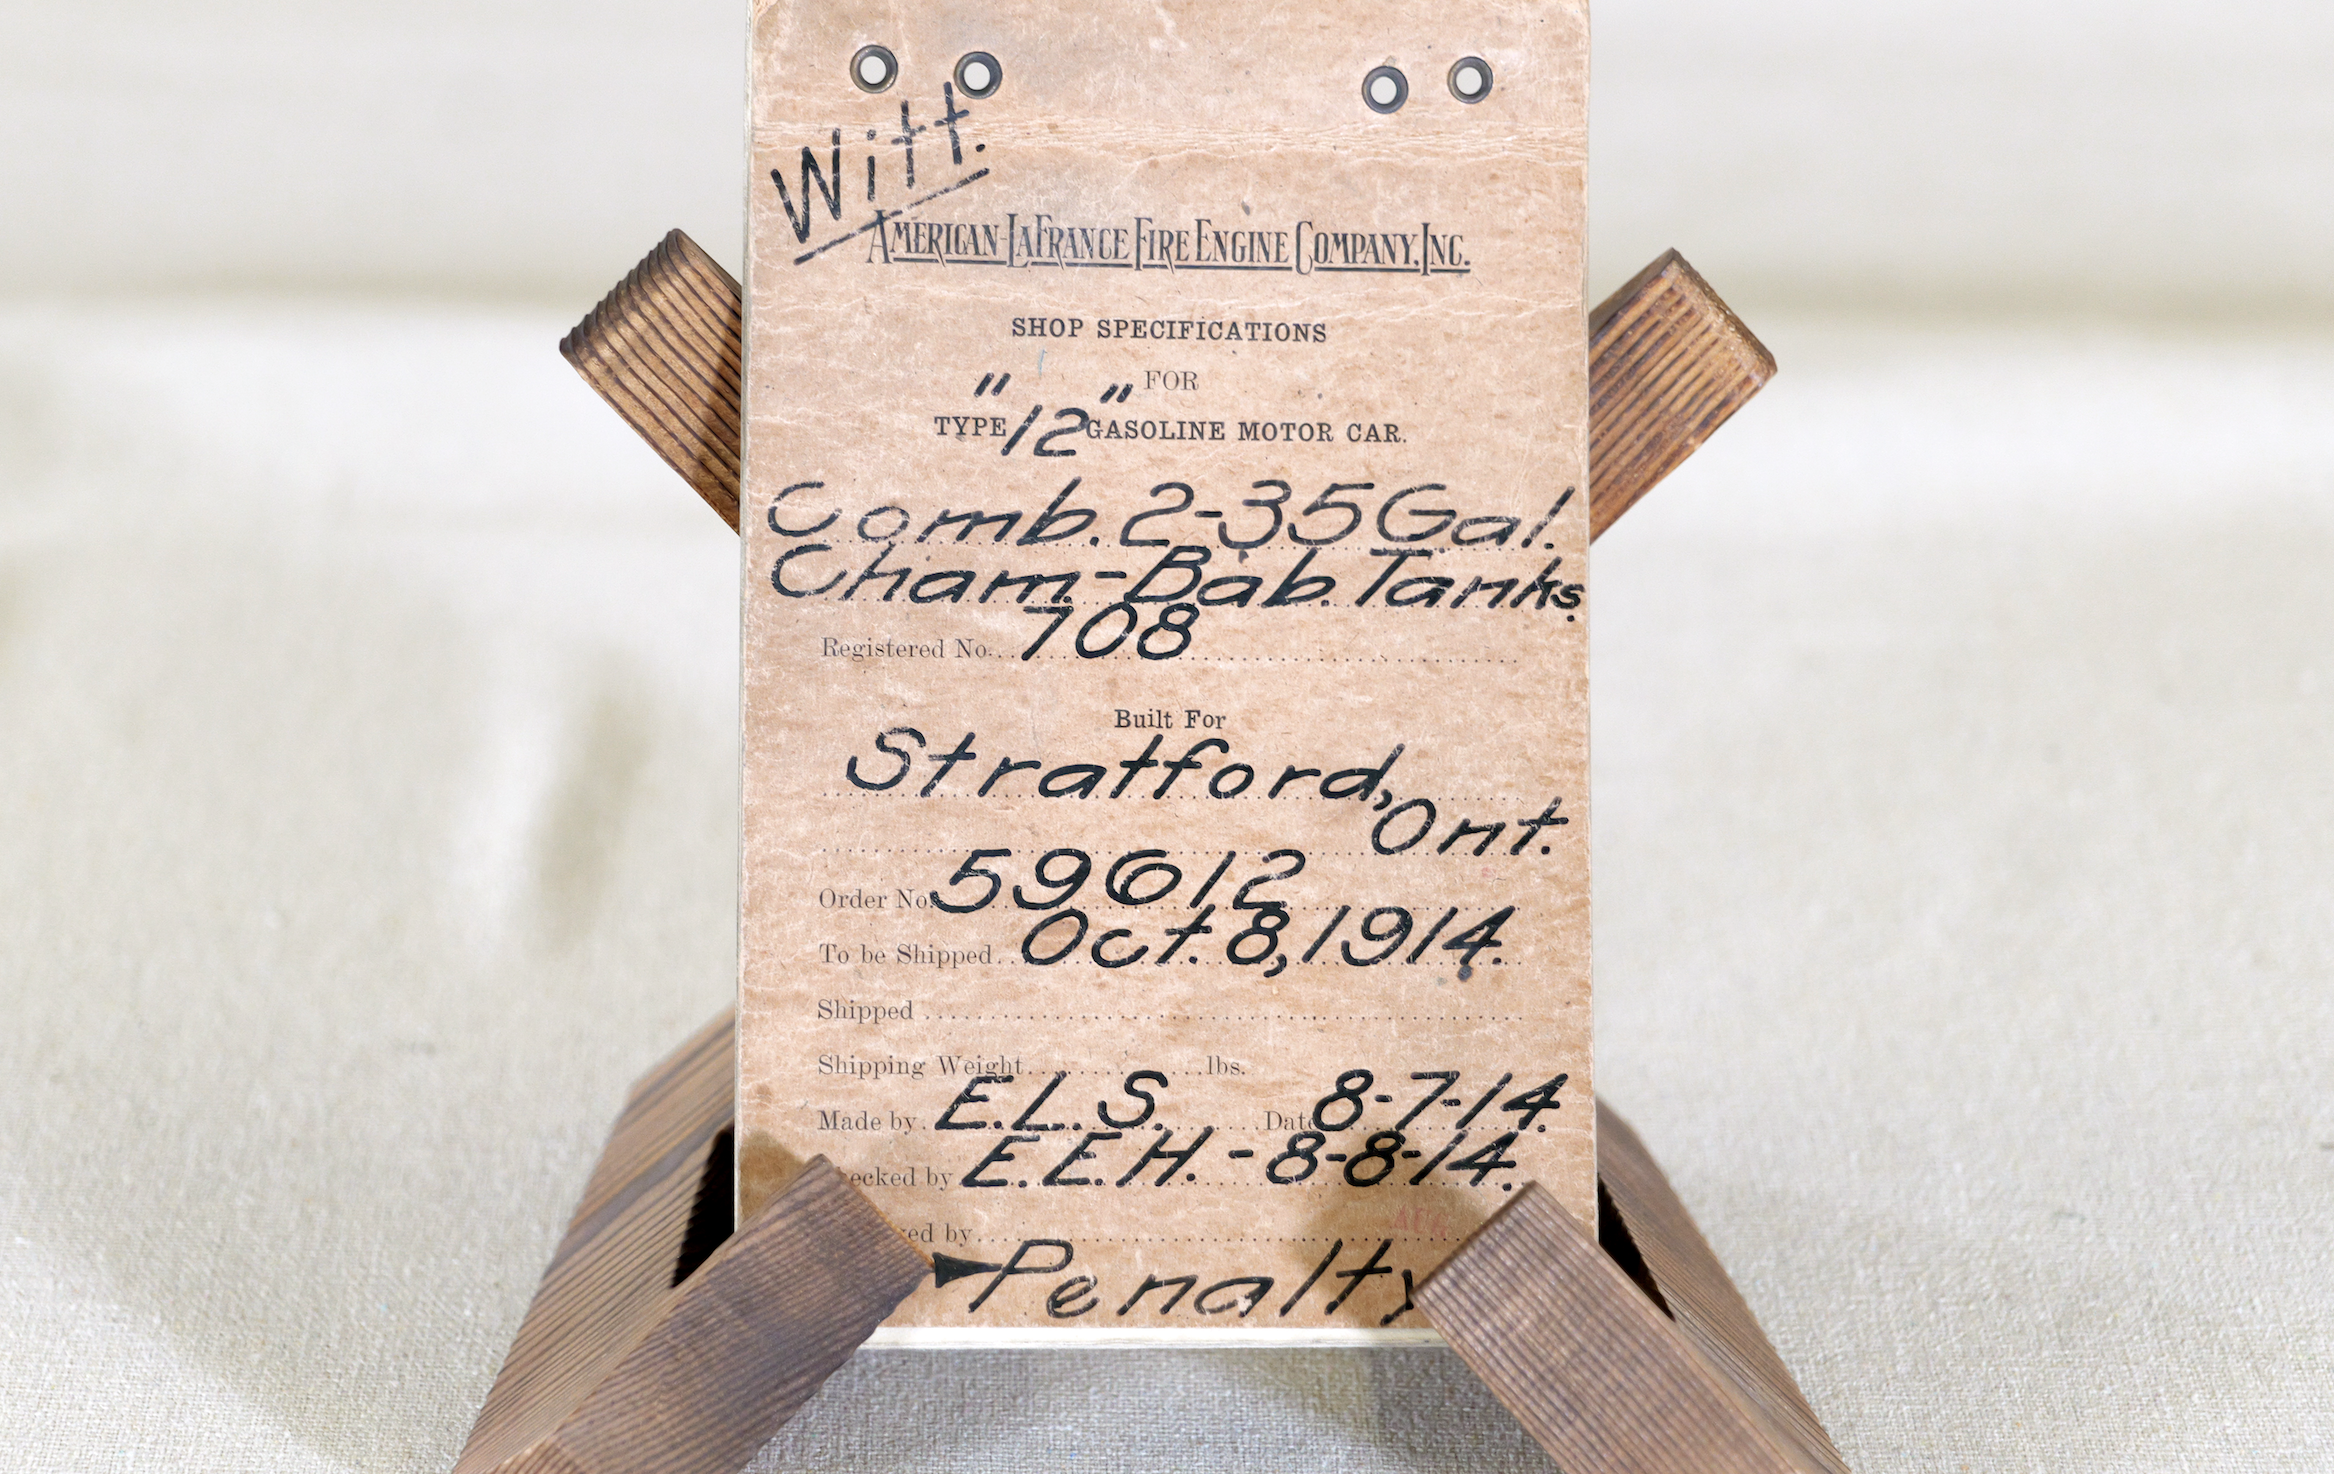 Witt.
AMERICAN-LAFRANCE FIRE ENGINE COMPANY, INC.
SHOP SPECIFICATIONS
FOR
TYPE "12" GASOLINE MOTOR CAR.
Comb. 2-35 Gal.
Cham-Bab. Tanks.
Registered No. 708
Built For
Stratford,
Ont.
Order No. 59612
To be Shipped Oct. 8, 1914.
Shipped
Shipping Weight lbs.
Made by E.L.S. Date 8-7-14.
ecked by E.E.H. - 8-8-14.
ed by
Penalty